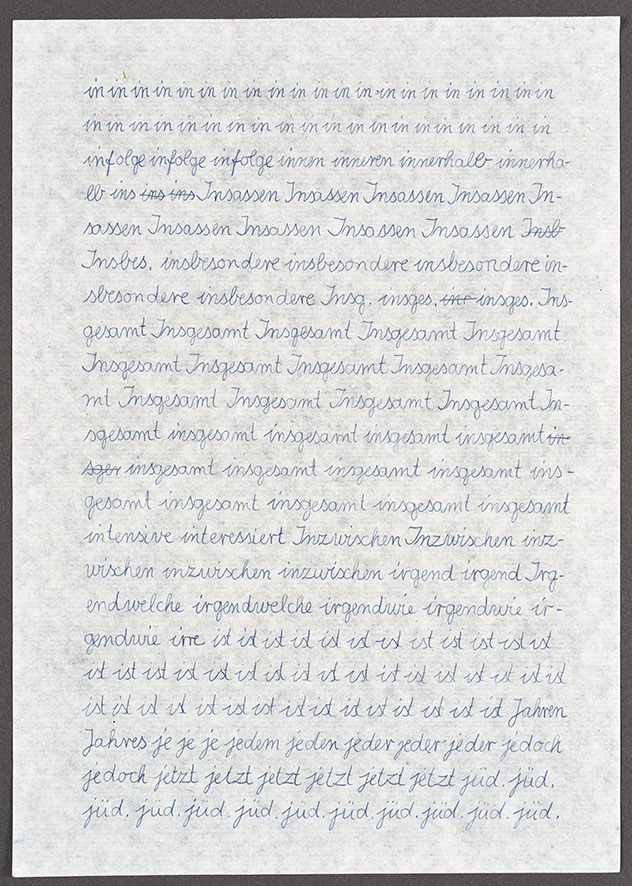 in in in in in in in in in in in in in in in in in in in in in
in in in in in in in in in in in in in in in in in in in in
infolge infolge infolge innen inneren innerhalb innerha-
lb ins ins ins Insassen Insassen Insassen Insassen In-
sassen Insassen Insassen Insassen Insassen Insb
Insbes. insbesondere insbesondere insbesondere in-
sbesondere insbesondere Insg. insges. ins insges. Ins-
gesamt Insgesamt Insgesamt Insgesamt Insgesamt
Insgesamt Insgesamt Insgesamt Insgesamt Insgesa-
mt Insgesamt Insgesamt Insgesamt Insgesamt In-
sgesamt insgesamt insgesamt insgesamt insgesamt in-
sger insgesamt insgesamt insgesamt insgesamt ins-
gesamt insgesamt insgesamt insgesamt insgesamt
intensive interessiert Inzwischen Inzwischen inz-
wischen inzwischen inzwischen irgend irgend Irg-
endwelche irgendwelche irgendwie irgendwie ir-
gendwie irre ist ist ist ist ist ist ist ist ist ist ist ist
ist ist ist ist ist ist ist ist ist ist ist ist ist ist ist ist ist
ist ist ist ist ist ist ist ist ist ist ist ist ist ist ist Jahren
Jahres je je je jedem jeden jeder jeder jeder jedoch
jedoch jetzt jetzt jetzt jetzt jetzt jetzt jüd. jüd.
jüd. jüd. jüd. jüd. jüd. jüd. jüd. jüd. jüd. jüd.